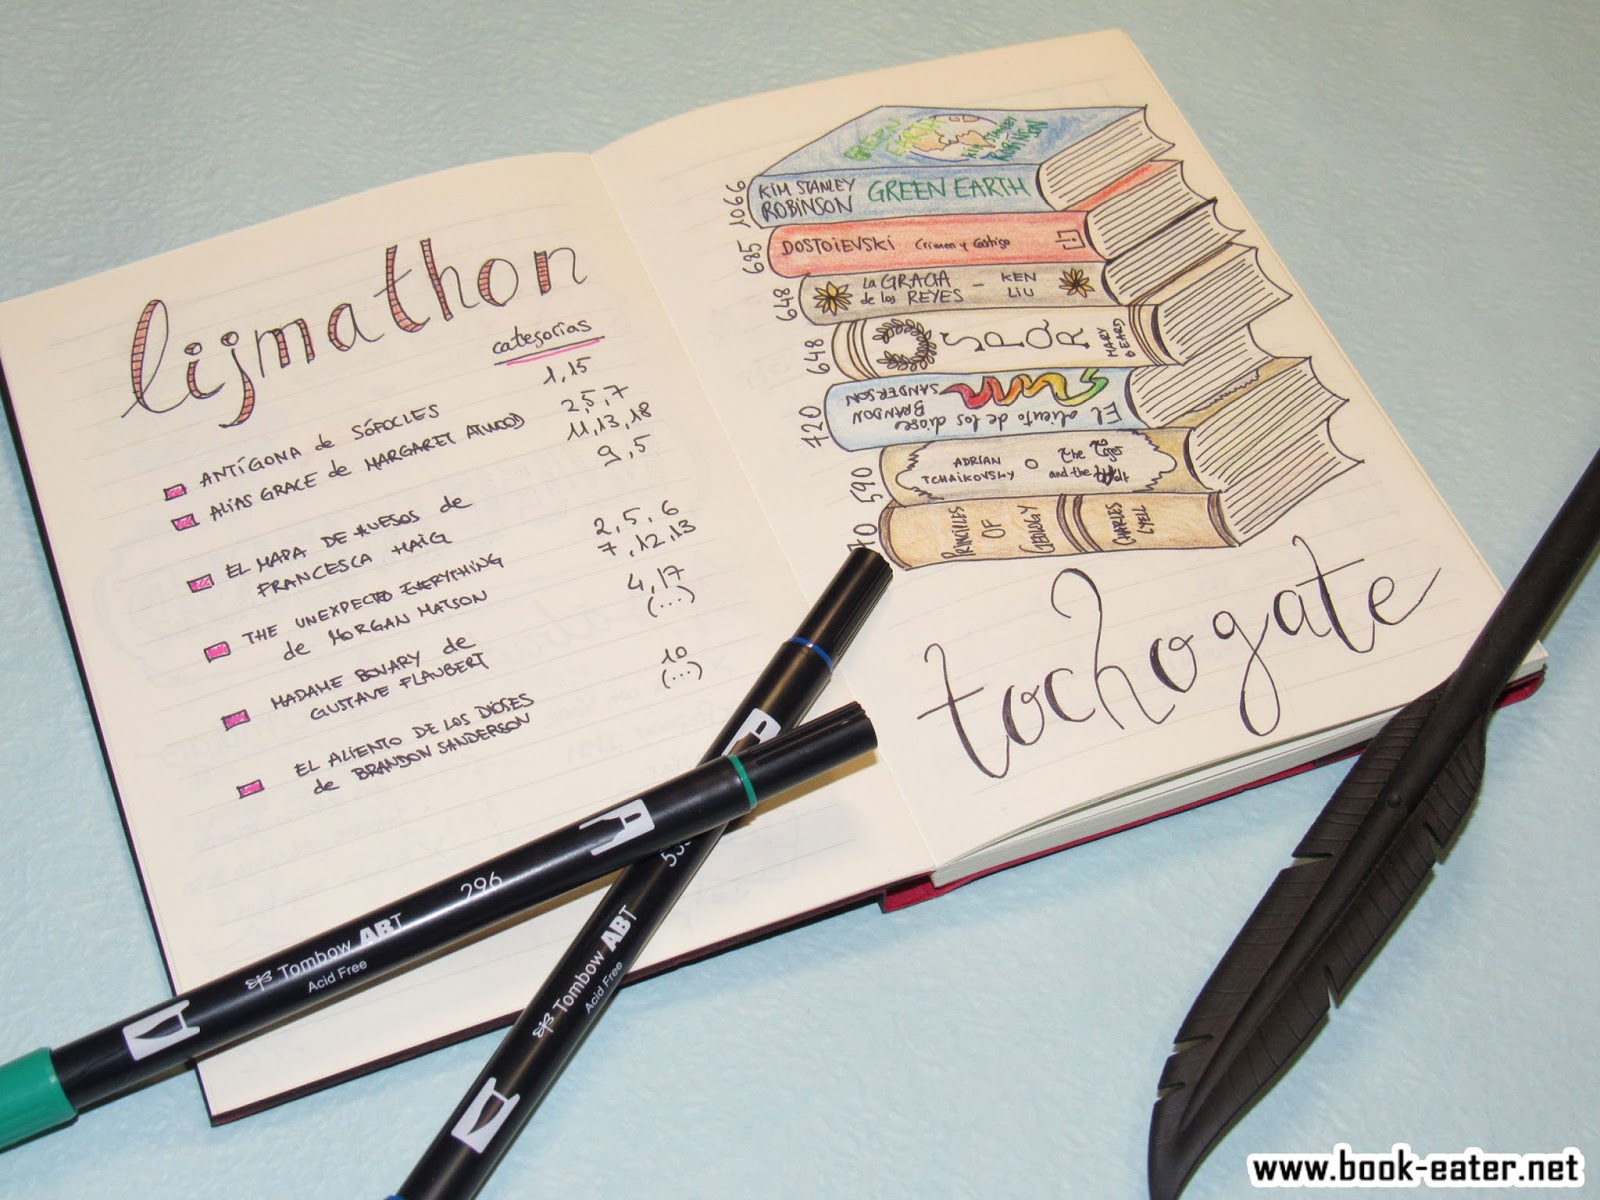 lijmathon
categorías
ANTÍGONA de SÓFOCLES 1, 15
ALIAS GRACE de MARGARET ATWOOD 2, 5, 7
11, 13, 18
EL MAPA DE HUESOS de 9, 5
FRANCESCA HAIG
THE UNEXPECTED EVERYTHING 2, 5, 6
de MORGAN MATSON 7, 12, 13
MADAME BOVARY de 4, 17
GUSTAVE FLAUBERT (...)
EL ALIENTO DE LOS DIOSES 10
de BRANDON SANDERSON (...)
GREEN EARTH
KIM STANLEY ROBINSON
1066
KIM STANLEY
ROBINSON
GREEN EARTH
685
DOSTOIEVSKI Crimen y Castigo
648
LA GRACIA
de los REYES
- KEN
LIU
648
SPQR
MARY
BEARD
720
El aliento de los dioses
BRANDON
SANDERSON
590
ADRIAN
TCHAIKOVSKY
The Tiger
and the Wolf
PRINCIPLES
OF
GEOLOGY
CHARLES
LYELL
tochogate
296
Tombow ABT
Acid Free
Tombow ABT
Acid Free
www.book-eater.net